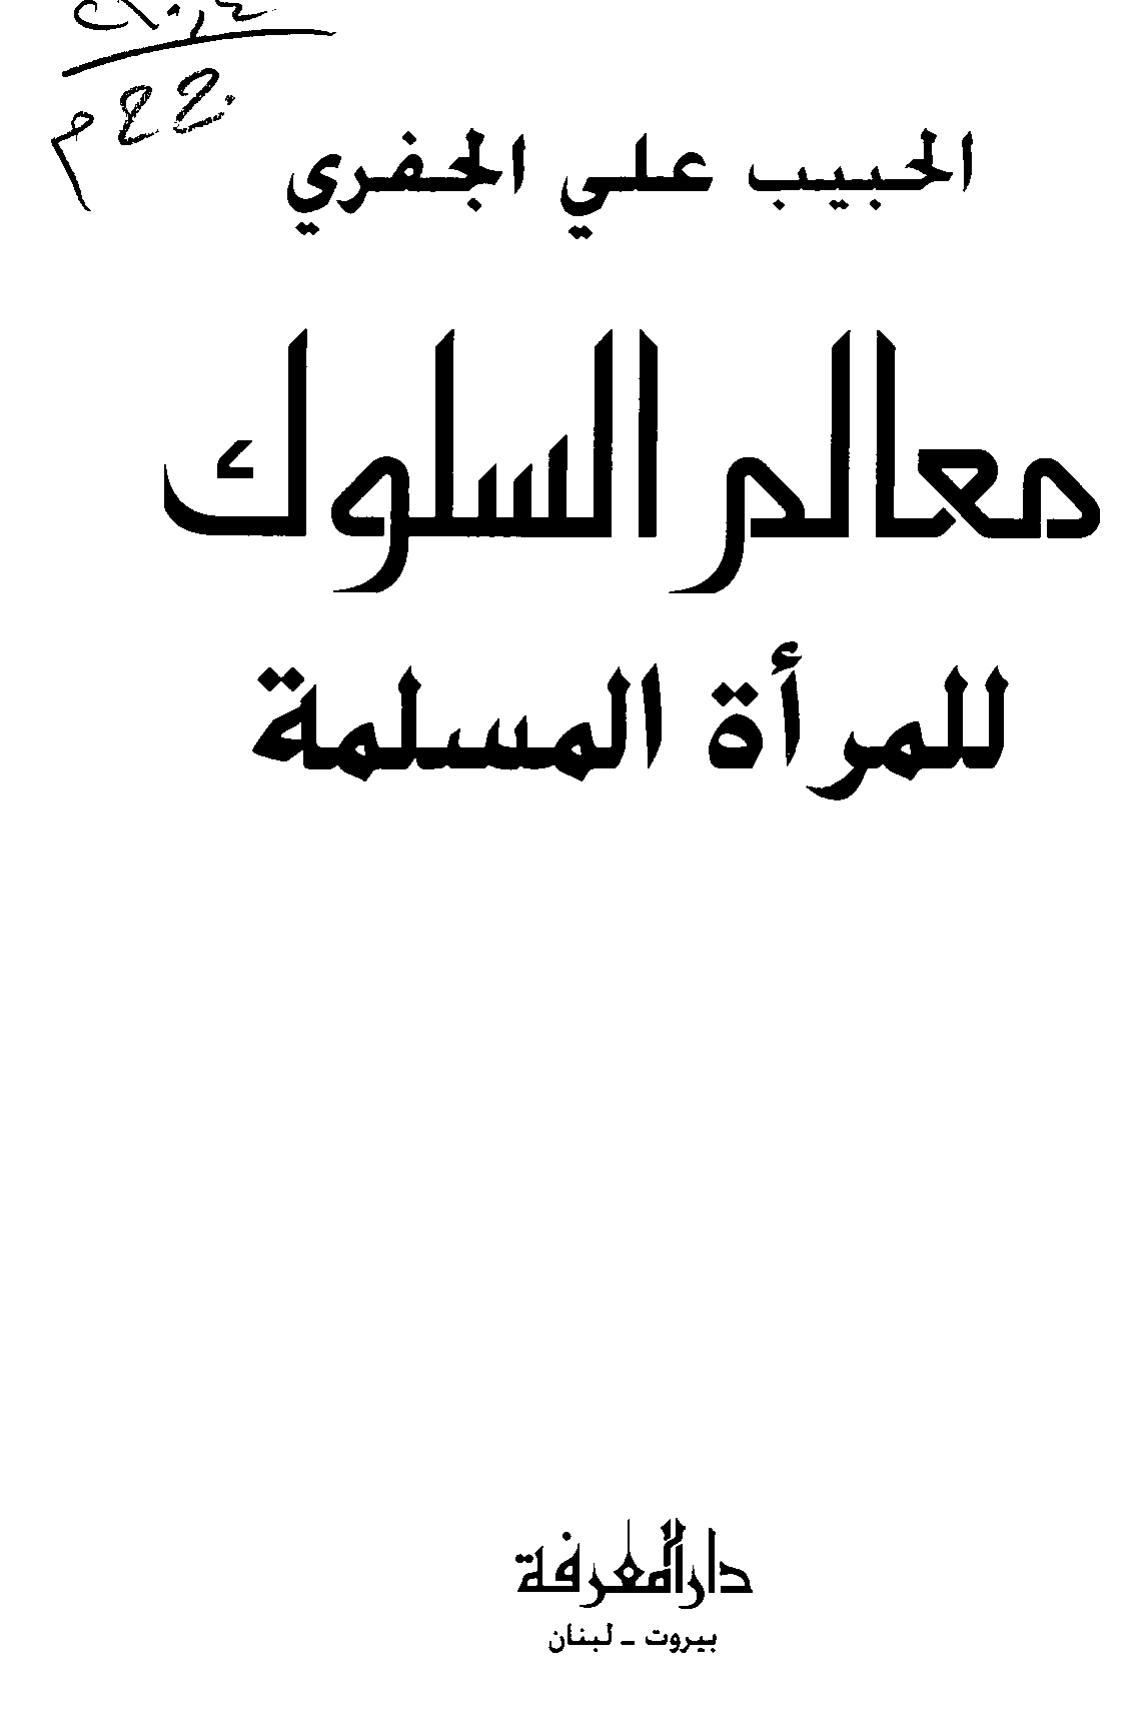 الحبيب علي الجفري
معالم السلوك
للمرأة المسلمة
دار المعرفة
بيروت ـ لبنان